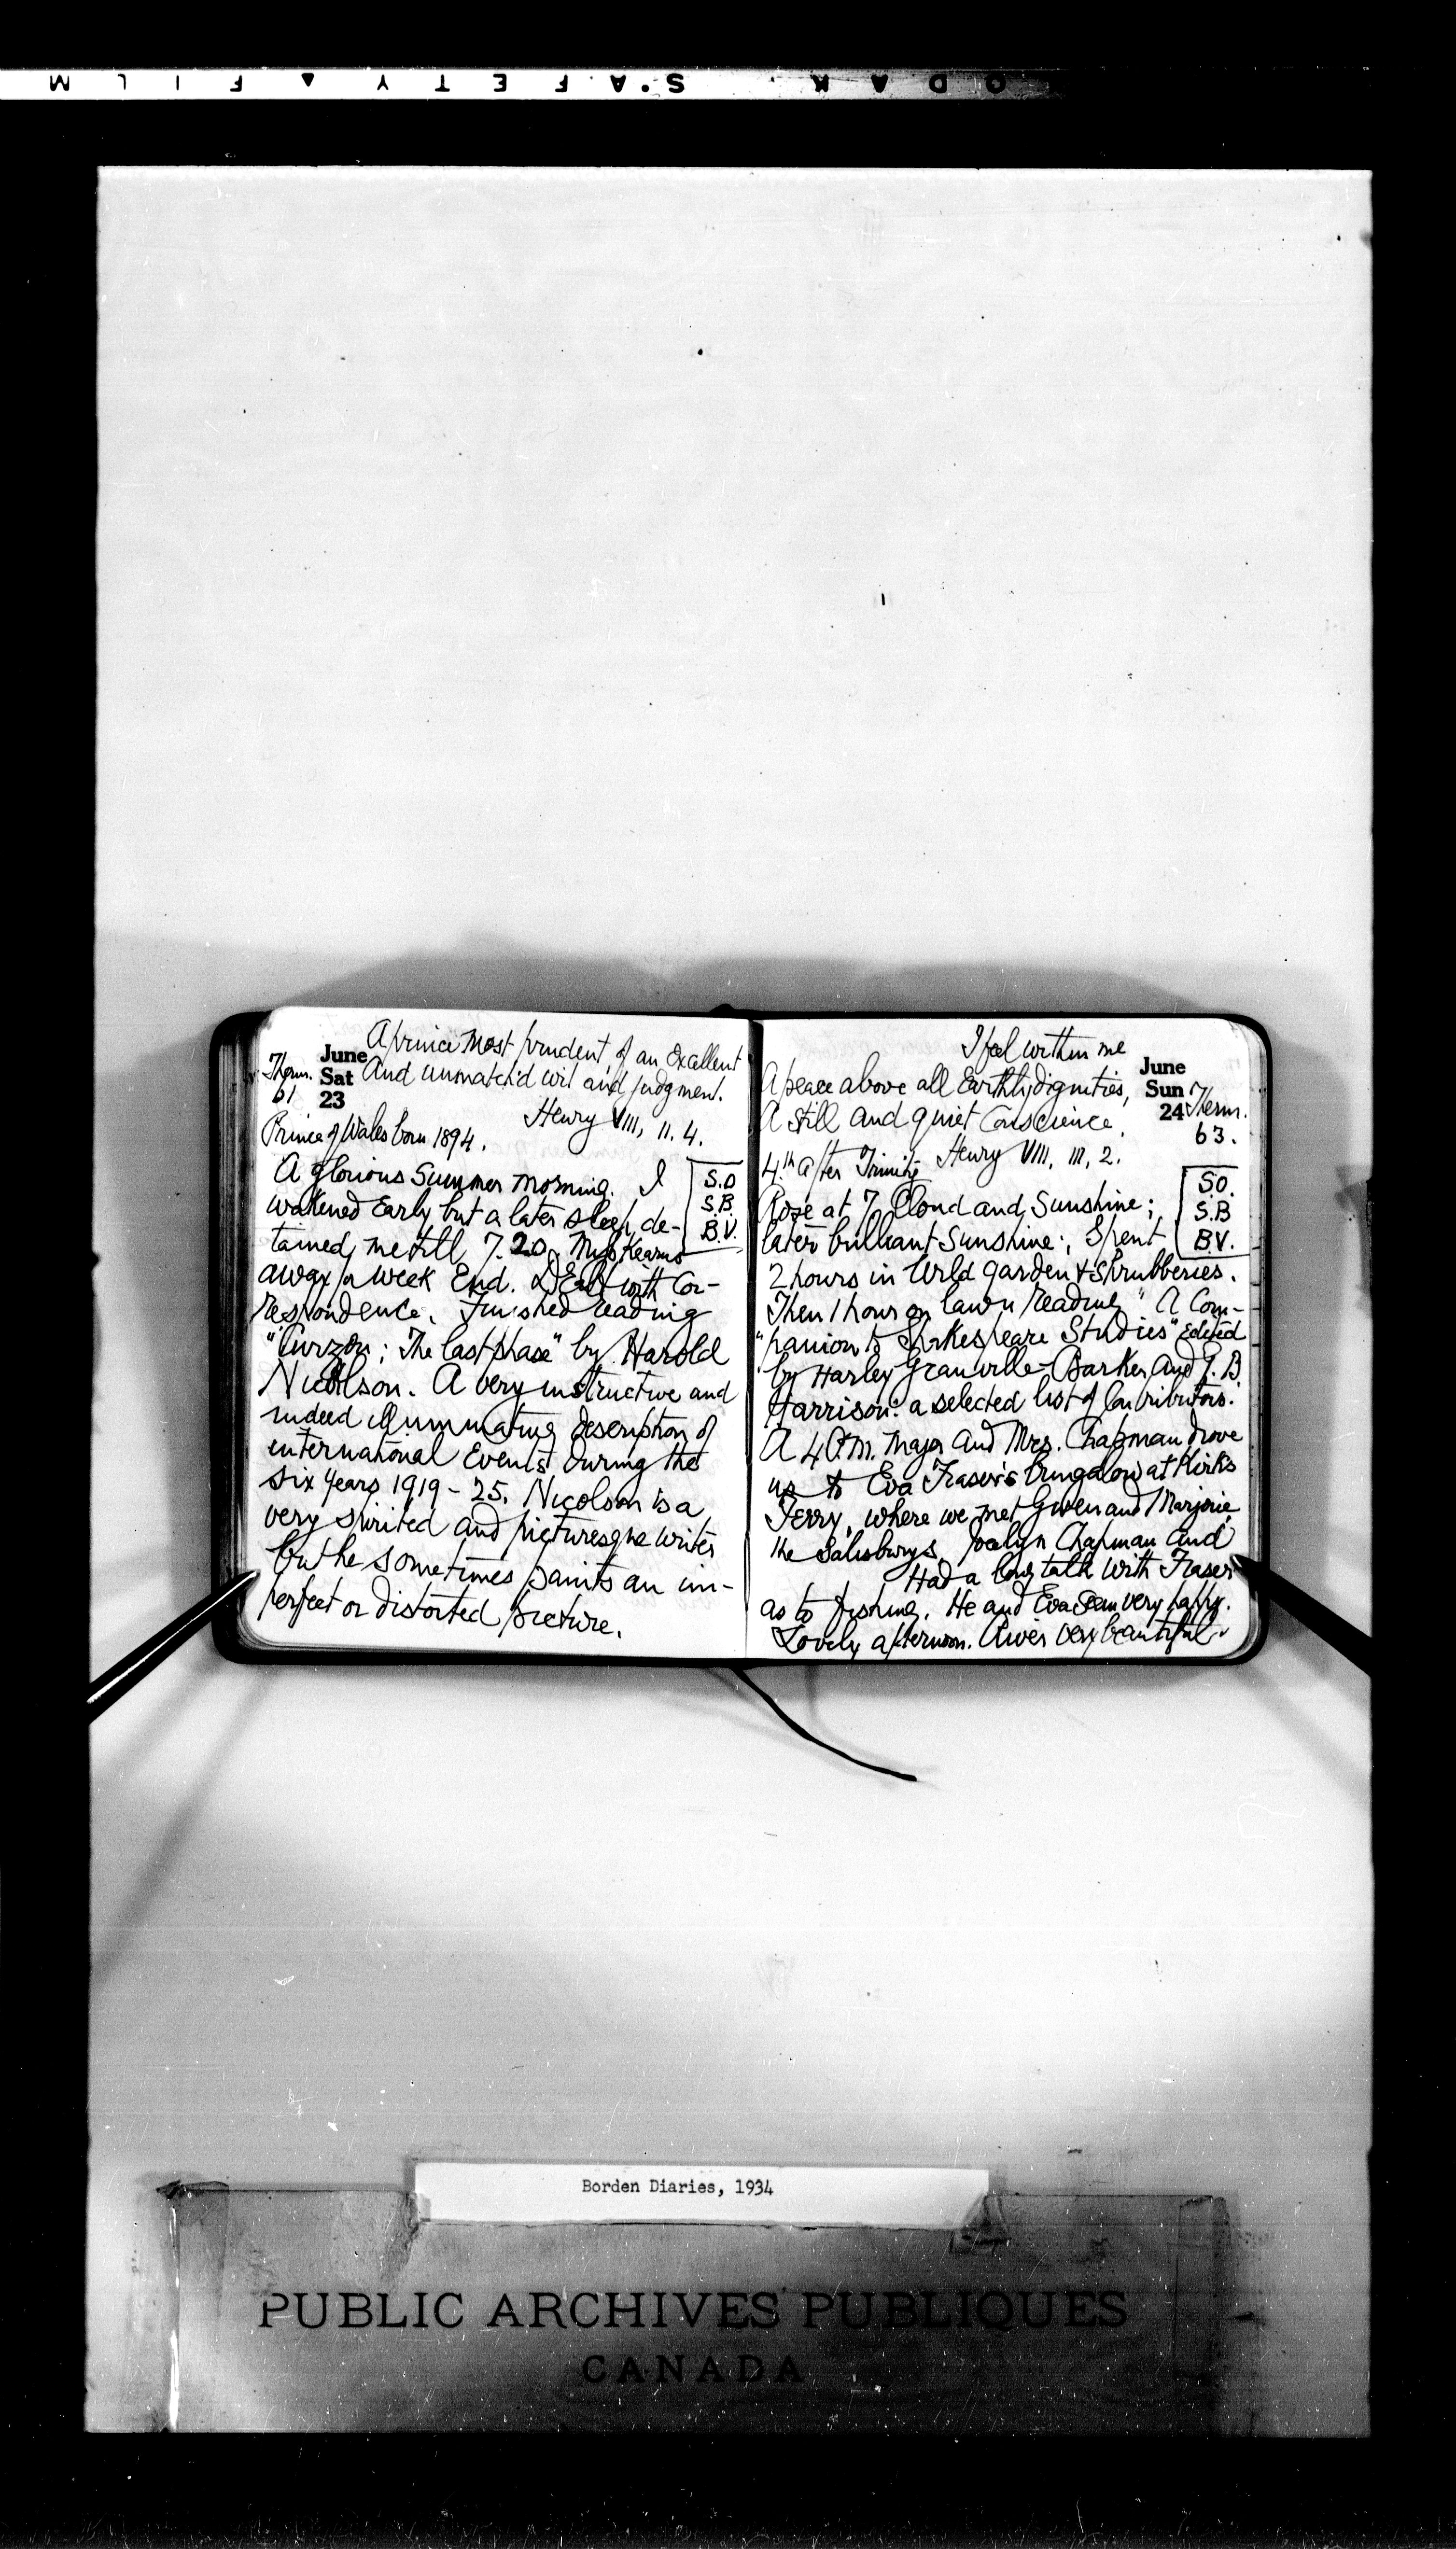 KODAK SAFETY FILM
A prince most prudent, of an Excellent
June
Therm. Sat And unmatch'd wit and judgment.
61 23
Henry VIII, II. 4.
Prince of Wales born 1894.
A glorious Summer morning. I
S.O
S.B.
B.V.
wakened Early but a later sleep de-
tained me till 7.20. Miss Kearns
away for week End. Dealt with Cor-
respondence. Finished reading
"Curzon: The last phase" by Harold
Nicolson. A very instructive and
indeed illuminating description of
international Events during the
six years 1919-25. Nicolson is a
very spirited and picturesque writer
but he sometimes paints an im-
perfect or distorted picture.
I feel within me
June
A peace above all Earthly dignities,
Sun Therm.
A still and quiet Conscience.
24 63.
Henry VIII, III, 2.
4th after Trinity
S.O.
S.B
B.V.
Rose at 7. Cloud and Sunshine;
later brilliant Sunshine; Spent
2 hours in Wild garden & Shrubberies.
Then 1 hour on lawn reading "A Com-
"panion to Shakespeare Studies" Edited
by Harley Granville-Barker and G. B.
Harrison: a selected list of Contributors.
A 4 P.M. Major and Mrs. Chapman drove
up to Eva Fraser's bungalow at Kirk's
Ferry, where we met Gwen and Marjorie,
the Salisburys, Joclyn Chapman and
Had a long talk with Fraser
as to fishing. He and Eva seem very happy.
Lovely afternoon. River very beautiful.
Borden Diaries, 1934
PUBLIC ARCHIVES PUBLIQUES
CANADA